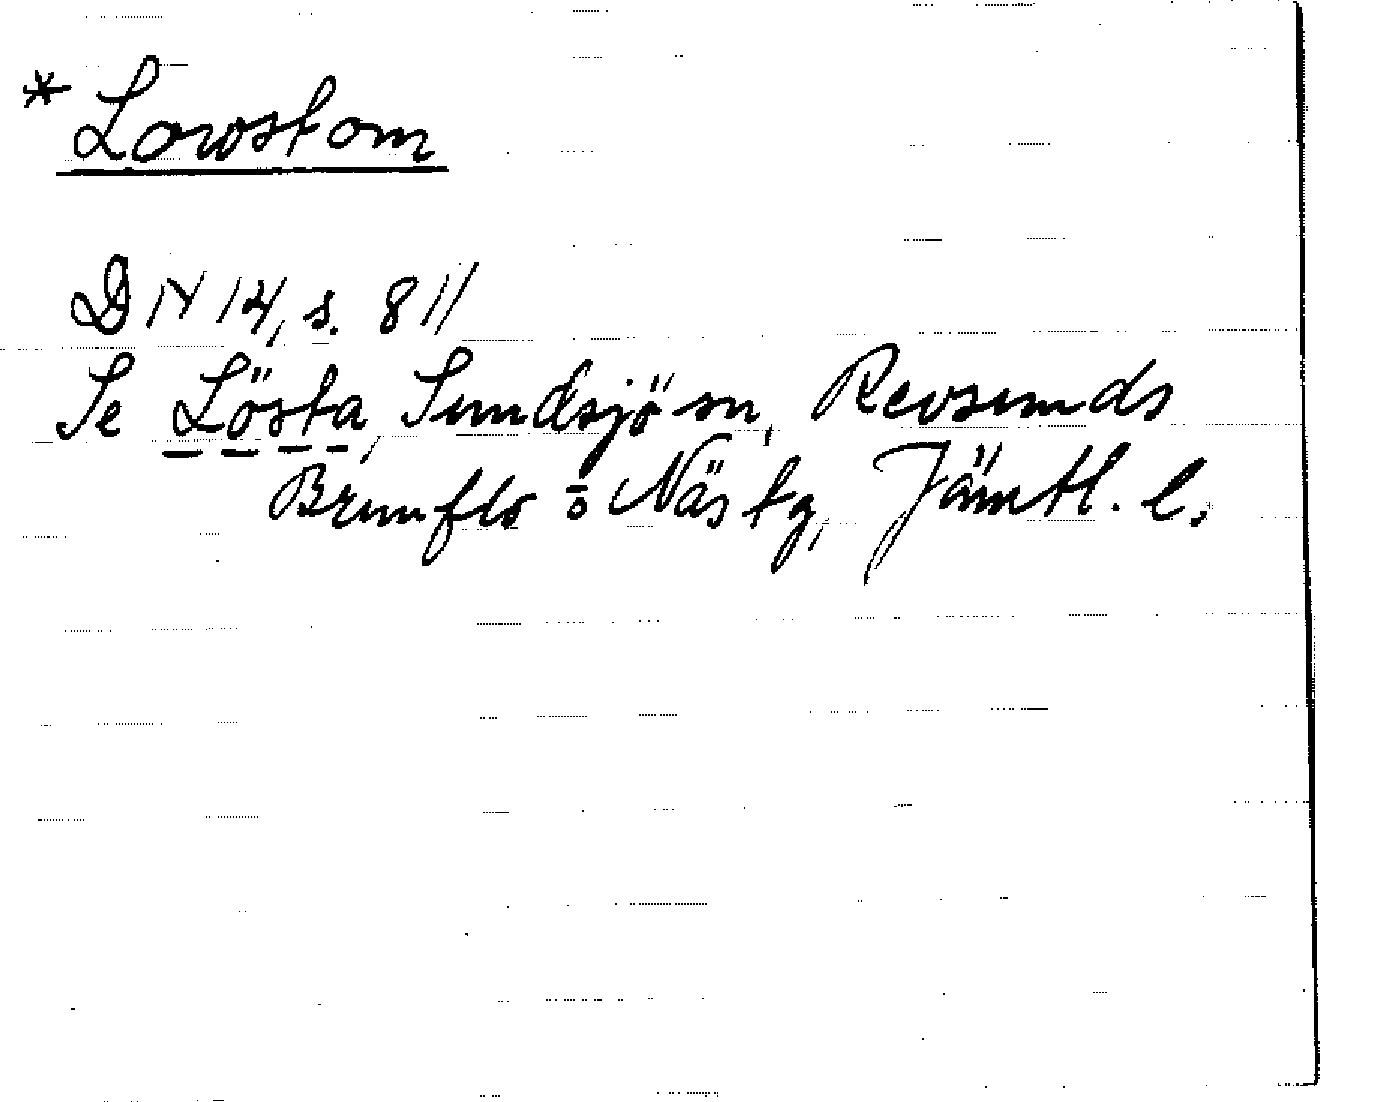 * Lowstom
DN 14, s. 811
Se Lösta, Sundsjö sn, Revsunds
Brunflo o Näs tg, Jämtl. l.